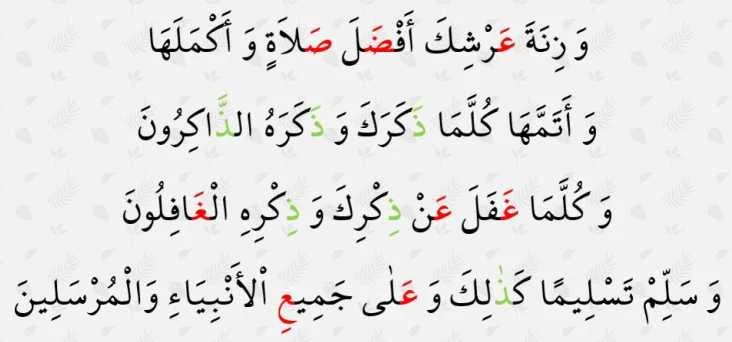 وَ زِنَةَ عَرْشِكَ أَفْضَلَ صَلاَةٍ وَ أَكْمَلَهَا
وَ أَتَمَّهَا كُلَّمَا ذَكَرَكَ وَ ذَكَرَهُ الذَّاكِرُونَ
وَ كُلَّمَا غَفَلَ عَنْ ذِكْرِكَ وَ ذِكْرِهِ الْغَافِلُونَ
وَ سَلِّمْ تَسْلِيمًا كَذٰلِكَ وَ عَلٰى جَمِيعِ اْلأَنْبِيَاءِ وَالْمُرْسَلِينَ